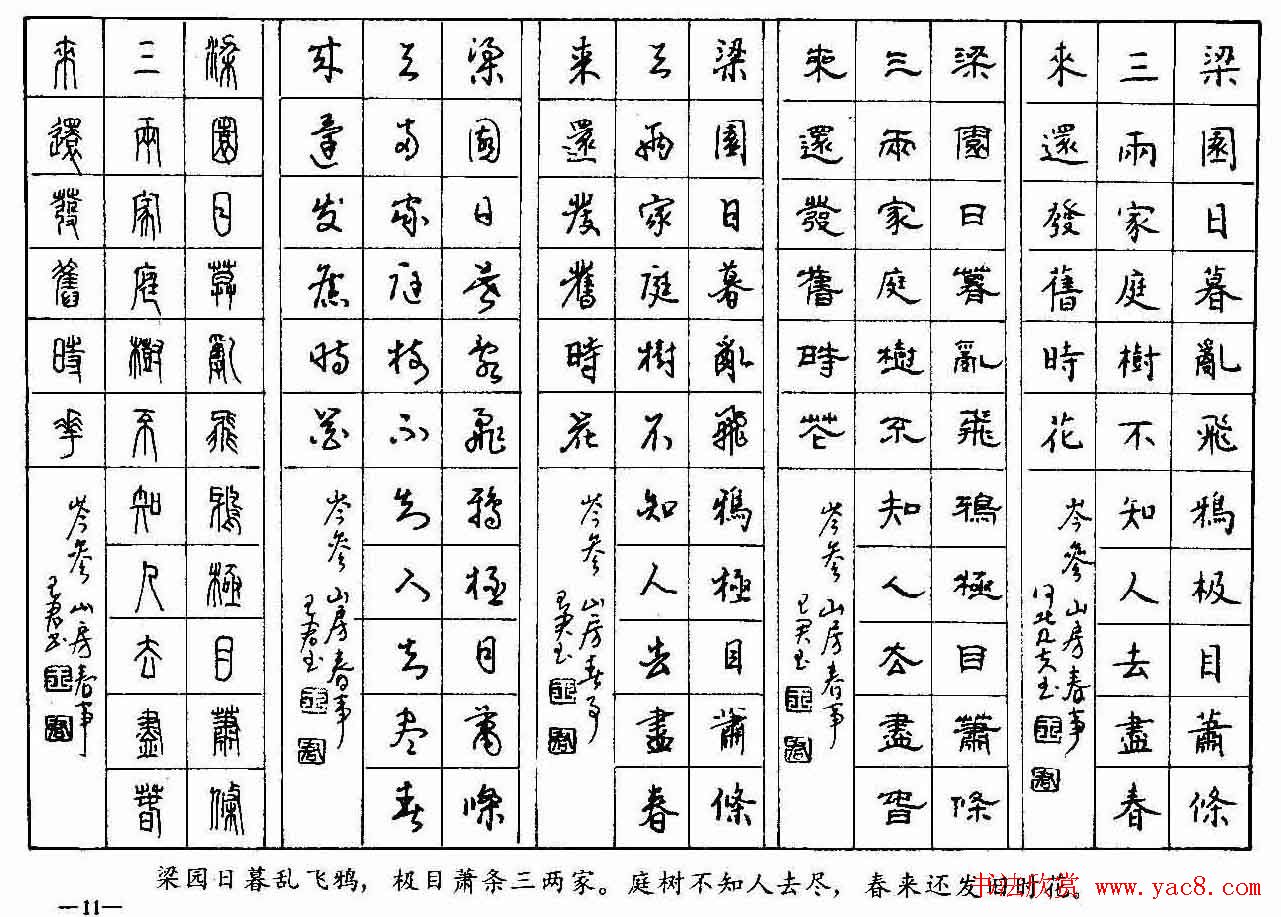 梁園日暮亂飛鴉极目蕭條
三兩家庭樹不知人去盡春
來還發舊時花
岑參 山房春事
梁園日暮亂飛鴉極目蕭條
三兩家庭樹不知人去盡春
來還發舊時花
岑參 山房春事
梁園日暮亂飛鴉極目蕭條
三兩家庭樹不知人去盡春
來還發舊時花
岑參 山房春事
梁園日暮亂飛鴉極目蕭條
三兩家庭樹不知人去盡春
來還發舊時花
岑參 山房春事
梁園日暮亂飛鴉極目蕭條
三兩家庭樹不知人去盡春
來還發舊時花
岑參 山房春事
梁园日暮乱飞鸦，极目萧条三两家。庭树不知人去尽，春来还发旧时花。
书法欣赏 www.yac8.com
—11—